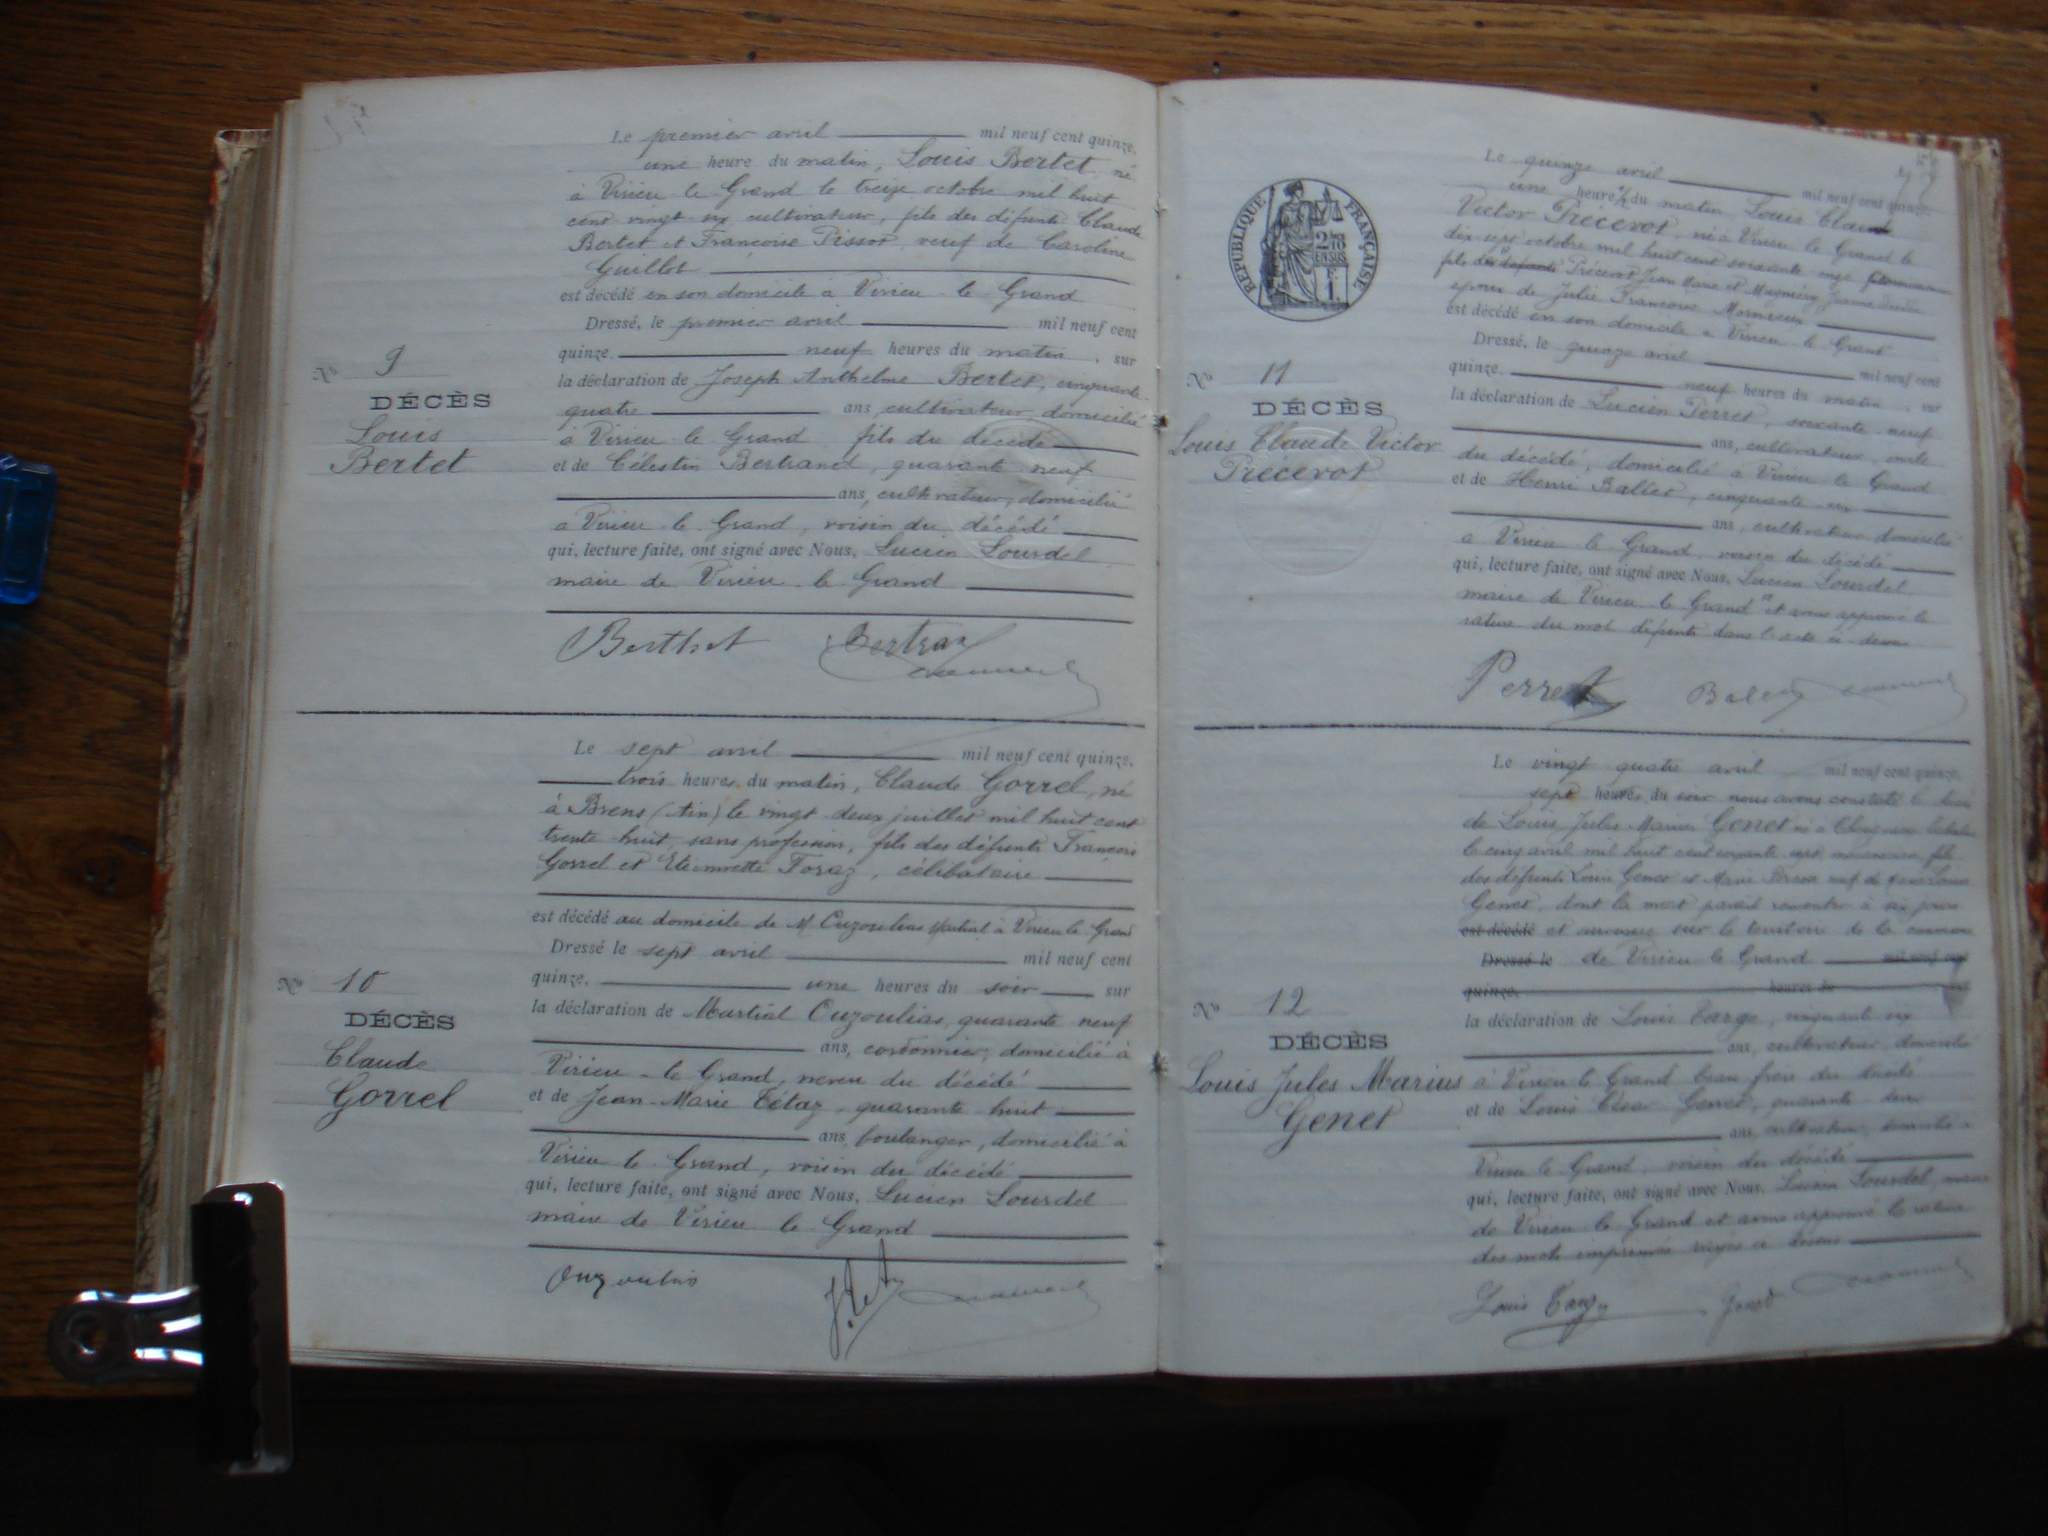 Le premier avril mil neuf cent quinze,
une heure du matin, Louis Bertet, né
à Virieu le Grand le treize octobre mil huit
cent vingt six, cultivateur, fils des défunts Claude
Bertet et Françoise Pissot, veuf de Caroline
Guillot
est décédé en son domicile à Virieu le Grand
Dressé, le premier avril mil neuf cent
quinze, neuf heures du matin, sur
la déclaration de Joseph Anthelme Bertet, cinquante
quatre ans, cultivateur, domicilié
à Virieu le Grand fils du décédé
et de Célestin Bertrand, quarante neuf
ans, cultivateur, domicilié
à Virieu le Grand, voisin du décédé
qui, lecture faite, ont signé avec Nous, Lucien Lourdel
maire de Virieu le Grand
Berthet Bertran
No 9
DÉCÈS
Louis
Bertet
Le sept avril mil neuf cent quinze,
trois heures du matin, Claude Gorrel, né
à Brens (Ain) le vingt deux juillet mil huit cent
trente huit, sans profession, fils des défunts François
Gorrel et Etiennette Foraz, célibataire
est décédé au domicile de M. Ouzoulias Martial à Virieu le Grand
Dressé le sept avril mil neuf cent
quinze, une heures du soir sur
la déclaration de Martial Ouzoulias, quarante neuf
ans, cordonnier, domicilié à
Virieu-le Grand, neveu du décédé
et de Jean-Marie Tétaz, quarante huit
ans, boulanger, domicilié à
Virieu le Grand, voisin du décédé
qui, lecture faite, ont signé avec Nous, Lucien Lourdel
maire de Virieu le Grand
Ouzoulias
No 10
DÉCÈS
Claude
Gorrel
RÉPUBLIQUE FRANÇAISE
Le quinze avril mil neuf cent quinze,
une heure ½ du matin Louis Claude
Victor Précerot, né à Virieu le Grand le
dix sept octobre mil huit cent soixante onze
fils des défunts Précerot Jean Marie et
époux de Julie Françoise
est décédé en son domicile à Virieu le Grand
Dressé, le quinze avril mil neuf cent
quinze, neuf heures du matin, sur
la déclaration de Lucien Perret, soixante neuf
ans, cultivateur, oncle
du décédé, domicilié à Virieu le Grand
et de Henri Ballet, cinquante six
ans, cultivateur domicilié
à Virieu le Grand, voisin du décédé
qui, lecture faite, ont signé avec Nous, Lucien Lourdel
maire de Virieu le Grand et avons approuvé la
rature du mot défunts dans l'acte ci-dessus
Perret
No 11
DÉCÈS
Louis Claude Victor
Précerot
Le vingt quatre avril mil neuf cent quinze,
sept heures du soir nous avons constaté le décès
de Louis Jules Marius Genet né à
le cinq avril mil huit cent soixante sept fils
des défunts Louis Genet et Marie veuf de
Genet, dont la mort paraît remonter à six jours
est décédé et survenue sur le territoire de la commune
Dressé le de Virieu le Grand mil neuf cent
quinze, heures du
la déclaration de Louis Targe, cinquante six
ans, cultivateur, domicilié
à Virieu le Grand beau frère du décédé
et de Louis César Genet, quarante deux
ans, cultivateur, domicilié à
Virieu le Grand, voisin du décédé
qui, lecture faite, ont signé avec Nous, Lucien Lourdel, maire
de Virieu le Grand et avons approuvé la rature
des mots imprimés rayés ci dessus
Louis Targe Genet
No 12
DÉCÈS
Louis Jules Marius
Genet